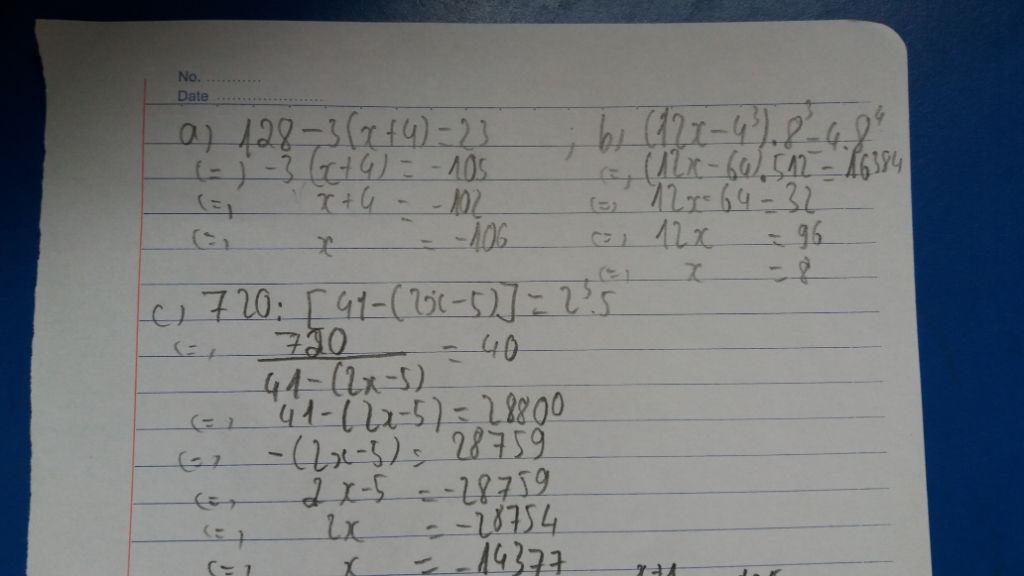 No. ...........
Date ......................
a) 128 - 3(x+4) = 23 ; b) (12x - 4³).8³ = 4.8⁴
(=) -3(x+4) = -105 (=) (12x - 64).512 = 16384
(=) x+4 = -102 (=) 12x - 64 = 32
(=) x = -106 (=) 12x = 96
(=) x = 8
c) 720 : [41 - (2x-5)] = 2³.5
(=) 720 / 41 - (2x-5) = 40
(=) 41 - (2x-5) = 28800
(=) -(2x-5) = 28759
(=) 2x-5 = -28759
(=) 2x = -28754
(=) x = -14377